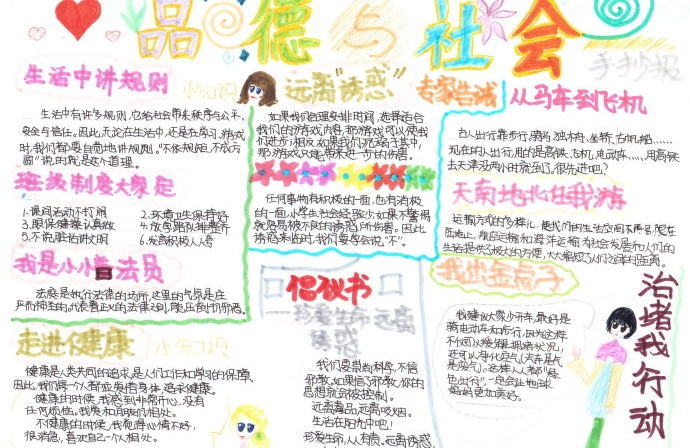 品德与社会
手抄报
生活中讲规则
小知识
生活中有许多规则,它给社会带来秩序与公平,
安全与信任。因此,无论在生活中,还是在学习、游戏
时,我们都要自觉地讲规则。“不依规矩,不成方
圆”说的就是这个道理。
班级制度大家定
1.课间活动不打闹
2.环境卫生保持好
3.眼保健操认真做
4.放学路队排整齐
5.不说脏话讲文明
6.发言积极人人夸
我是小小 法员
法庭是执行法律的场所,这里的气氛是庄
严而神圣的,代表着正义的法律之剑,随
走进健康
小知识
健康是人类共同的追求,是人们工作和学习的保障。
因此,我们每一个人都应爱惜身体,追求健康。
健康的时候,我感到非常开心,没有
任何烦恼。我 和朋友们相处。
不健康的时候,我觉得心情不好,
很消极,喜欢自己一个人相处。
远离“诱惑”
如果我们合理安排时间,选择适合
我们的游戏内容,那游戏可以使我
们进步;相反,如果我们沉迷于其中,
那游戏只能带来进一步的伤害。
任何事物有积极的一面,也有消极
的一面,小学生社会经验少,如果不警惕
就容易被不良的诱惑所伤害。因此
诱惑来临时,我们要学会说“不”。
倡议书
珍爱生命 远离
诱惑
我们要崇尚科学,不信
邪教,如果信了邪教,你的
思想就会被控制。
远离毒品,远离吸烟。
生活在阳光中吧!
珍爱生命,人人有责,远离诱惑
专家告诫
从马车到飞机
古人出行靠步行、骑马、独木舟、坐轿、古帆船……
现在的人出行,用的是高铁、飞机、电动车……,用高铁
去天津没两小时就到了,很先进吧?
天南地北任我游
运输方式的多样化,使我们的生活空间不再局限在
陆地上,航空运输和海洋运输为社会发展和人们的
生活提供了极大的方便,大大缩短了人们之间的距离。
我出金点子
我建议大家少开车,最好是
骑电动车和步行,因为这样
不仅可以缓解拥堵状况,
还可以净化空气(汽车是尾
气),这样人人都“绿
色出行”一定会让地球
妈妈更加美好。
治堵我行动